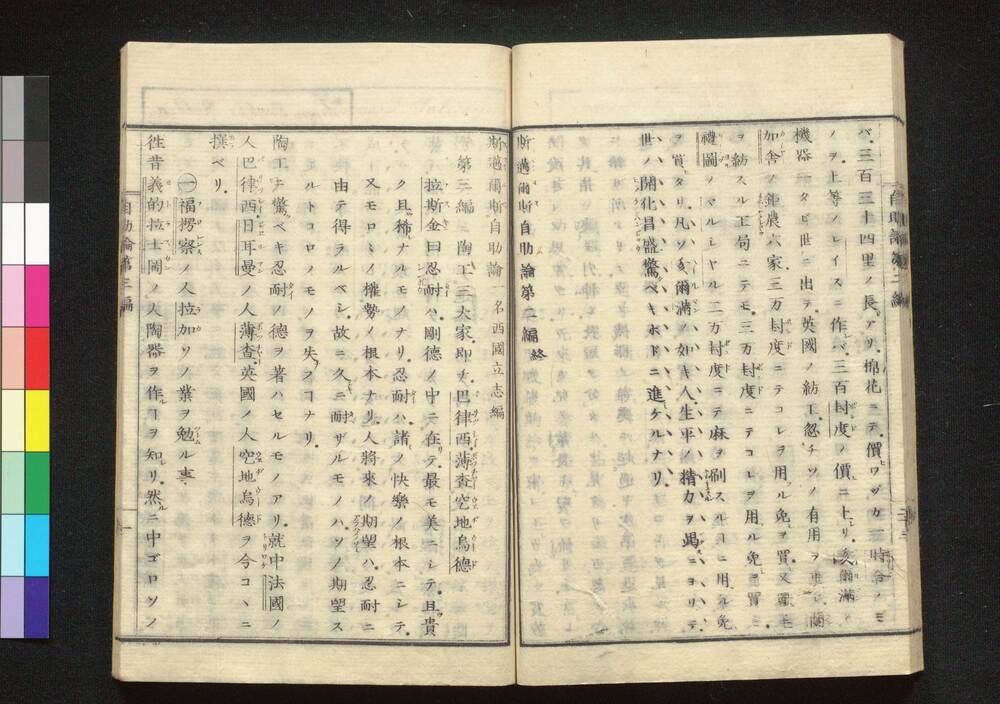 バ、三百三十四里ノ長アリ、棉花ニテ、價ワヅカ一時令ノモ
ノヲ、上等ノレイスニ作レバ、三百封度ノ價ニ上レリ、亥爾滿ノ
機器一タビ世ニ出テ、英國ノ紡工、忽チソノ有用ヲ重シ、蘭
加舍ノ鉅農六家、三万封度ニテコレヲ用ル免ヲ買、又羅毛
ヲ紡スル工局ニテモ、三万封度ニテコレヲ用ル免ヲ買ヒ
禮圖ノマルシヤル二万封度ニテ麻ヲ刷スルコニ用ル免
ヲ買タリ、凡ソ亥爾滿ノ如キ人、生平ノ精力ヲ竭スニヨリテ、
世ハ開化昌盛、驚ベキホドニ進ケルナリ、
斯邁爾斯自助論第二編 終
斯邁爾斯自助論 一名西國立志編
第三編 陶工三大家、即チ巴律西、薄査、空地烏德
拉斯金曰、忍耐ハ剛德ノ中ニ在リテ、最モ美ニシテ、且貴
ク、且稀ナルモノナリ、忍耐ハ諸ノ快樂ノ根本ニシテ、
又モロ〻〻ノ權勢ノ根本ナリ、人將來ノ期望ハ、忍耐ニ
由テ得ラルベシ、故ニ久ニ耐ザルモノハ、ソノ期望ス
ルトコロノモノヲ失フコナリ、
陶工ニ驚ベキ忍耐ノ德ヲ著ハセルモノアリ、就中法國ノ
人巴律西、日耳曼ノ人薄査、英國ノ人空地烏德ヲ今コヽニ
撰ベリ、
㊀福撈察ノ人拉加ソノ業ヲ勉ル事
徃昔義的拉士岡ノ人、陶器ヲ作コヲ知リ、然ニ中ゴロソノ
自助論第三編
一